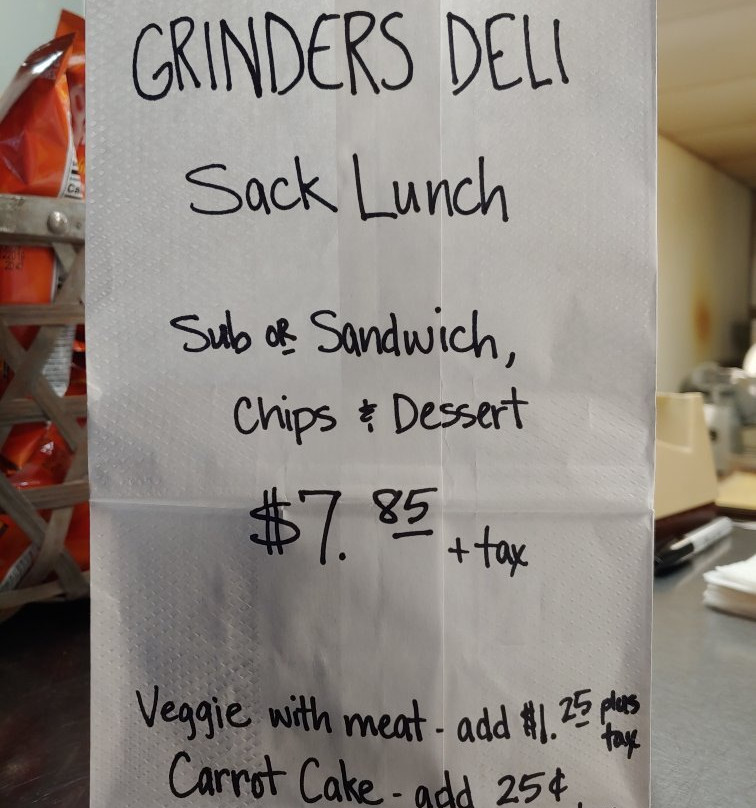 GRINDERS DELI
Sack Lunch
Sub OR Sandwich,
Chips & Dessert
$7.85 + tax
Veggie with meat - add $1.25 plus tax
Carrot Cake - add 25¢.